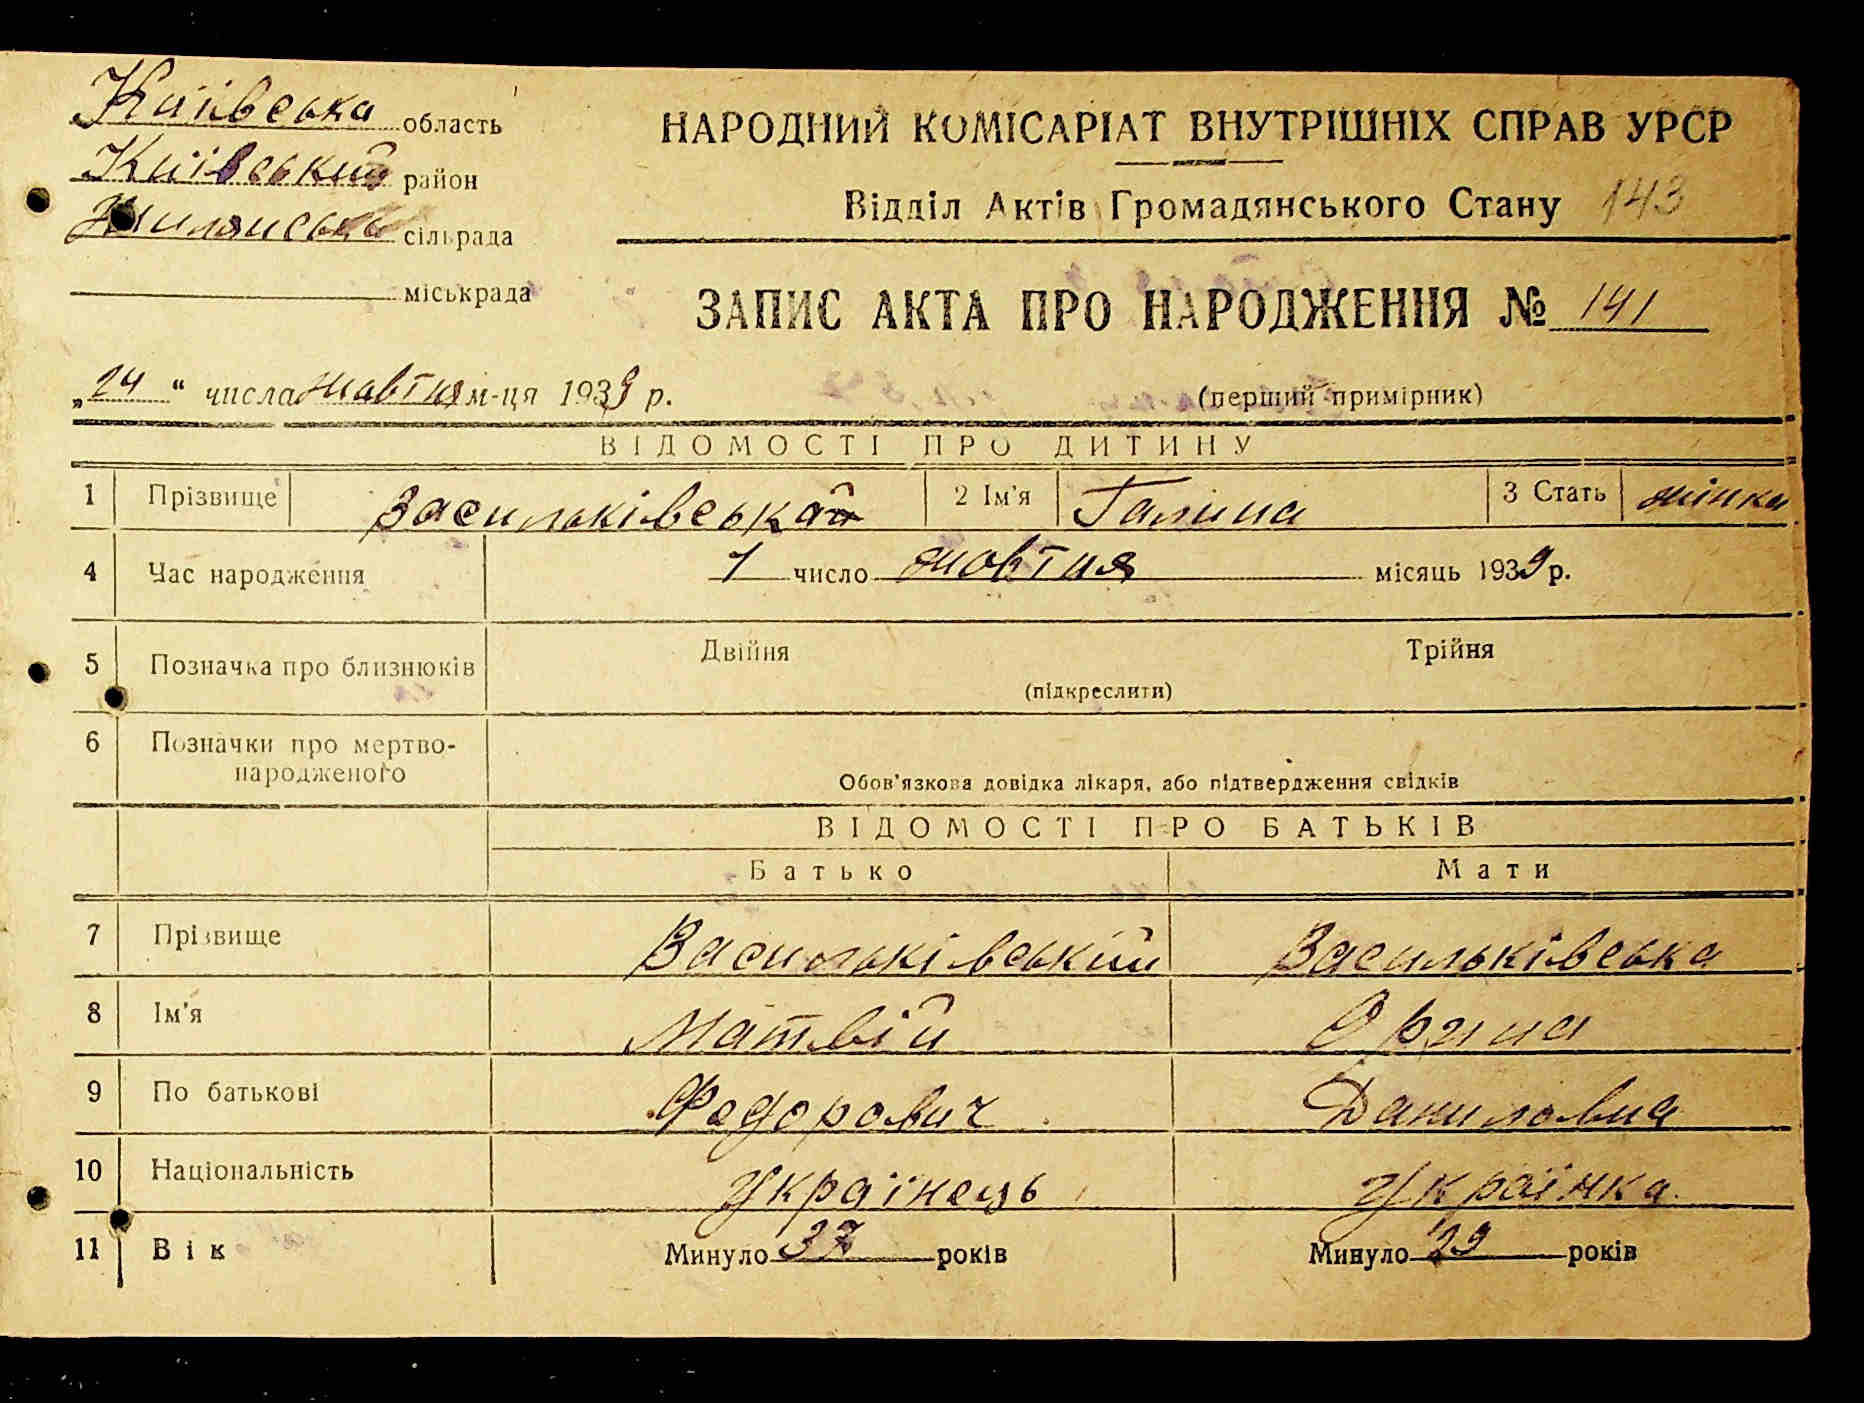 Київська область
Київський район
Жилянська сільрада
міськрада
НАРОДНИЙ КОМІСАРІАТ ВНУТРІШНІХ СПРАВ УРСР
Відділ Актів Громадянського Стану 143
ЗАПИС АКТА ПРО НАРОДЖЕННЯ № 141
„24“ числа жовтня м-ця 1939 р.
(перший примірник)
ВІДОМОСТІ ПРО ДИТИНУ
1 Прізвище Васильківська 2 Ім'я Галина 3 Стать жінка
4 Час народження 1 число жовтня місяць 1939 р.
5 Позначка про близнюків Двійня Трійня
(підкреслити)
6 Позначки про мертво-
народженого
Обов'язкова довідка лікаря, або підтвердження свідків
ВІДОМОСТІ ПРО БАТЬКІВ
Батько Мати
7 Прізвище Васильківський Васильківська
8 Ім'я Матвій Орина
9 По батькові Федорович Даниловна
10 Національність Українець Українка
11 Вік Минуло 37 років Минуло 29 років